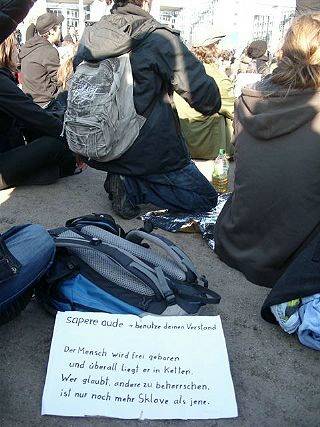 sapere aude → benutze deinen Verstand
Der Mensch wird frei geboren
und überall liegt er in Ketten.
Wer glaubt, andere zu beherrschen,
ist nur noch mehr Sklave als jene.